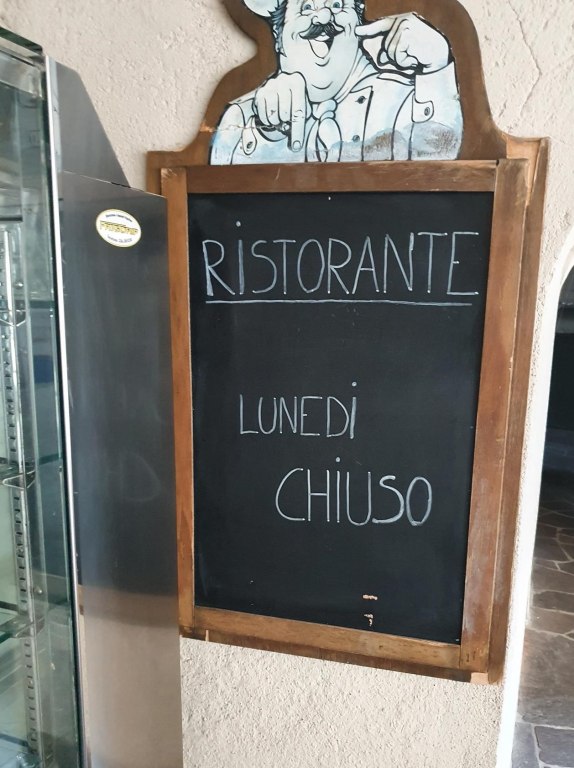 RISTORANTE
LUNEDI
CHIUSO